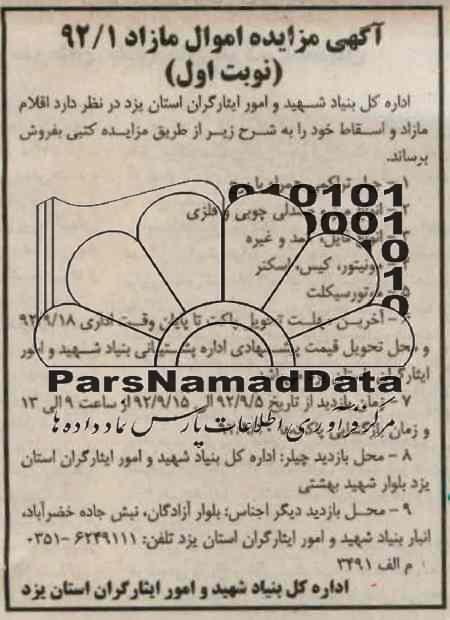 آگهی مزایده اموال مازاد ۹۲/۱
(نوبت اول)
اداره کل بنیاد شهید و امور ایثارگران استان یزد در نظر دارد اقلام
مازاد و اسقاط خود را به شرح زیر از طریق مزایده کتبی بفروش
برساند.
۱ -
۲ - انواع صندلی چوبی و فلزی
۳ - انواع فایل، کمد و غیره
۴ - مونیتور، کیس، اسکنر
۵ - موتورسیکلت
۶ - آخرین مهلت تحویل پاکت تا پایان وقت اداری ۹۲/۹/۱۸
و محل تحویل قیمت پیشنهادی اداره پشتیبانی بنیاد شهید و امور
ایثارگران
۷ - زمان بازدید از تاریخ ۹۲/۹/۵ الی ۹۲/۹/۱۵ از ساعت ۹ الی ۱۳
و زمان
۸ - محل بازدید چیلر: اداره کل بنیاد شهید و امور ایثارگران استان
یزد بلوار شهید بهشتی
۹ - محل بازدید دیگر اجناس: بلوار آزادگان، نبش جاده خضرآباد،
انبار بنیاد شهید و امور ایثارگران استان یزد تلفن: ۶۲۴۹۱۱۱-۰۳۵۱
م الف ۳۴۹۱
اداره کل بنیاد شهید و امور ایثارگران استان یزد
010101
0001
10
1
0
ParsNamadData
مرکز فرآوری اطلاعات پارس نماد داده ها